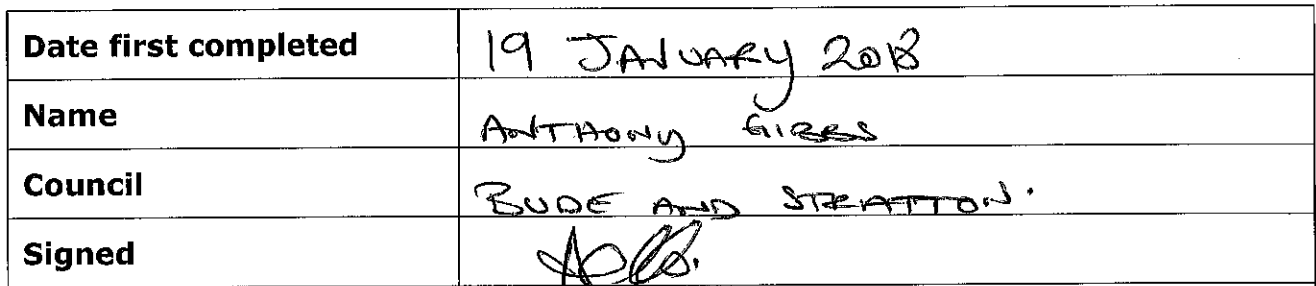 Date first completed 19 JANUARY 2018
Name ANTHONY GIBBS
Council BUDE AND STRATTON.
Signed